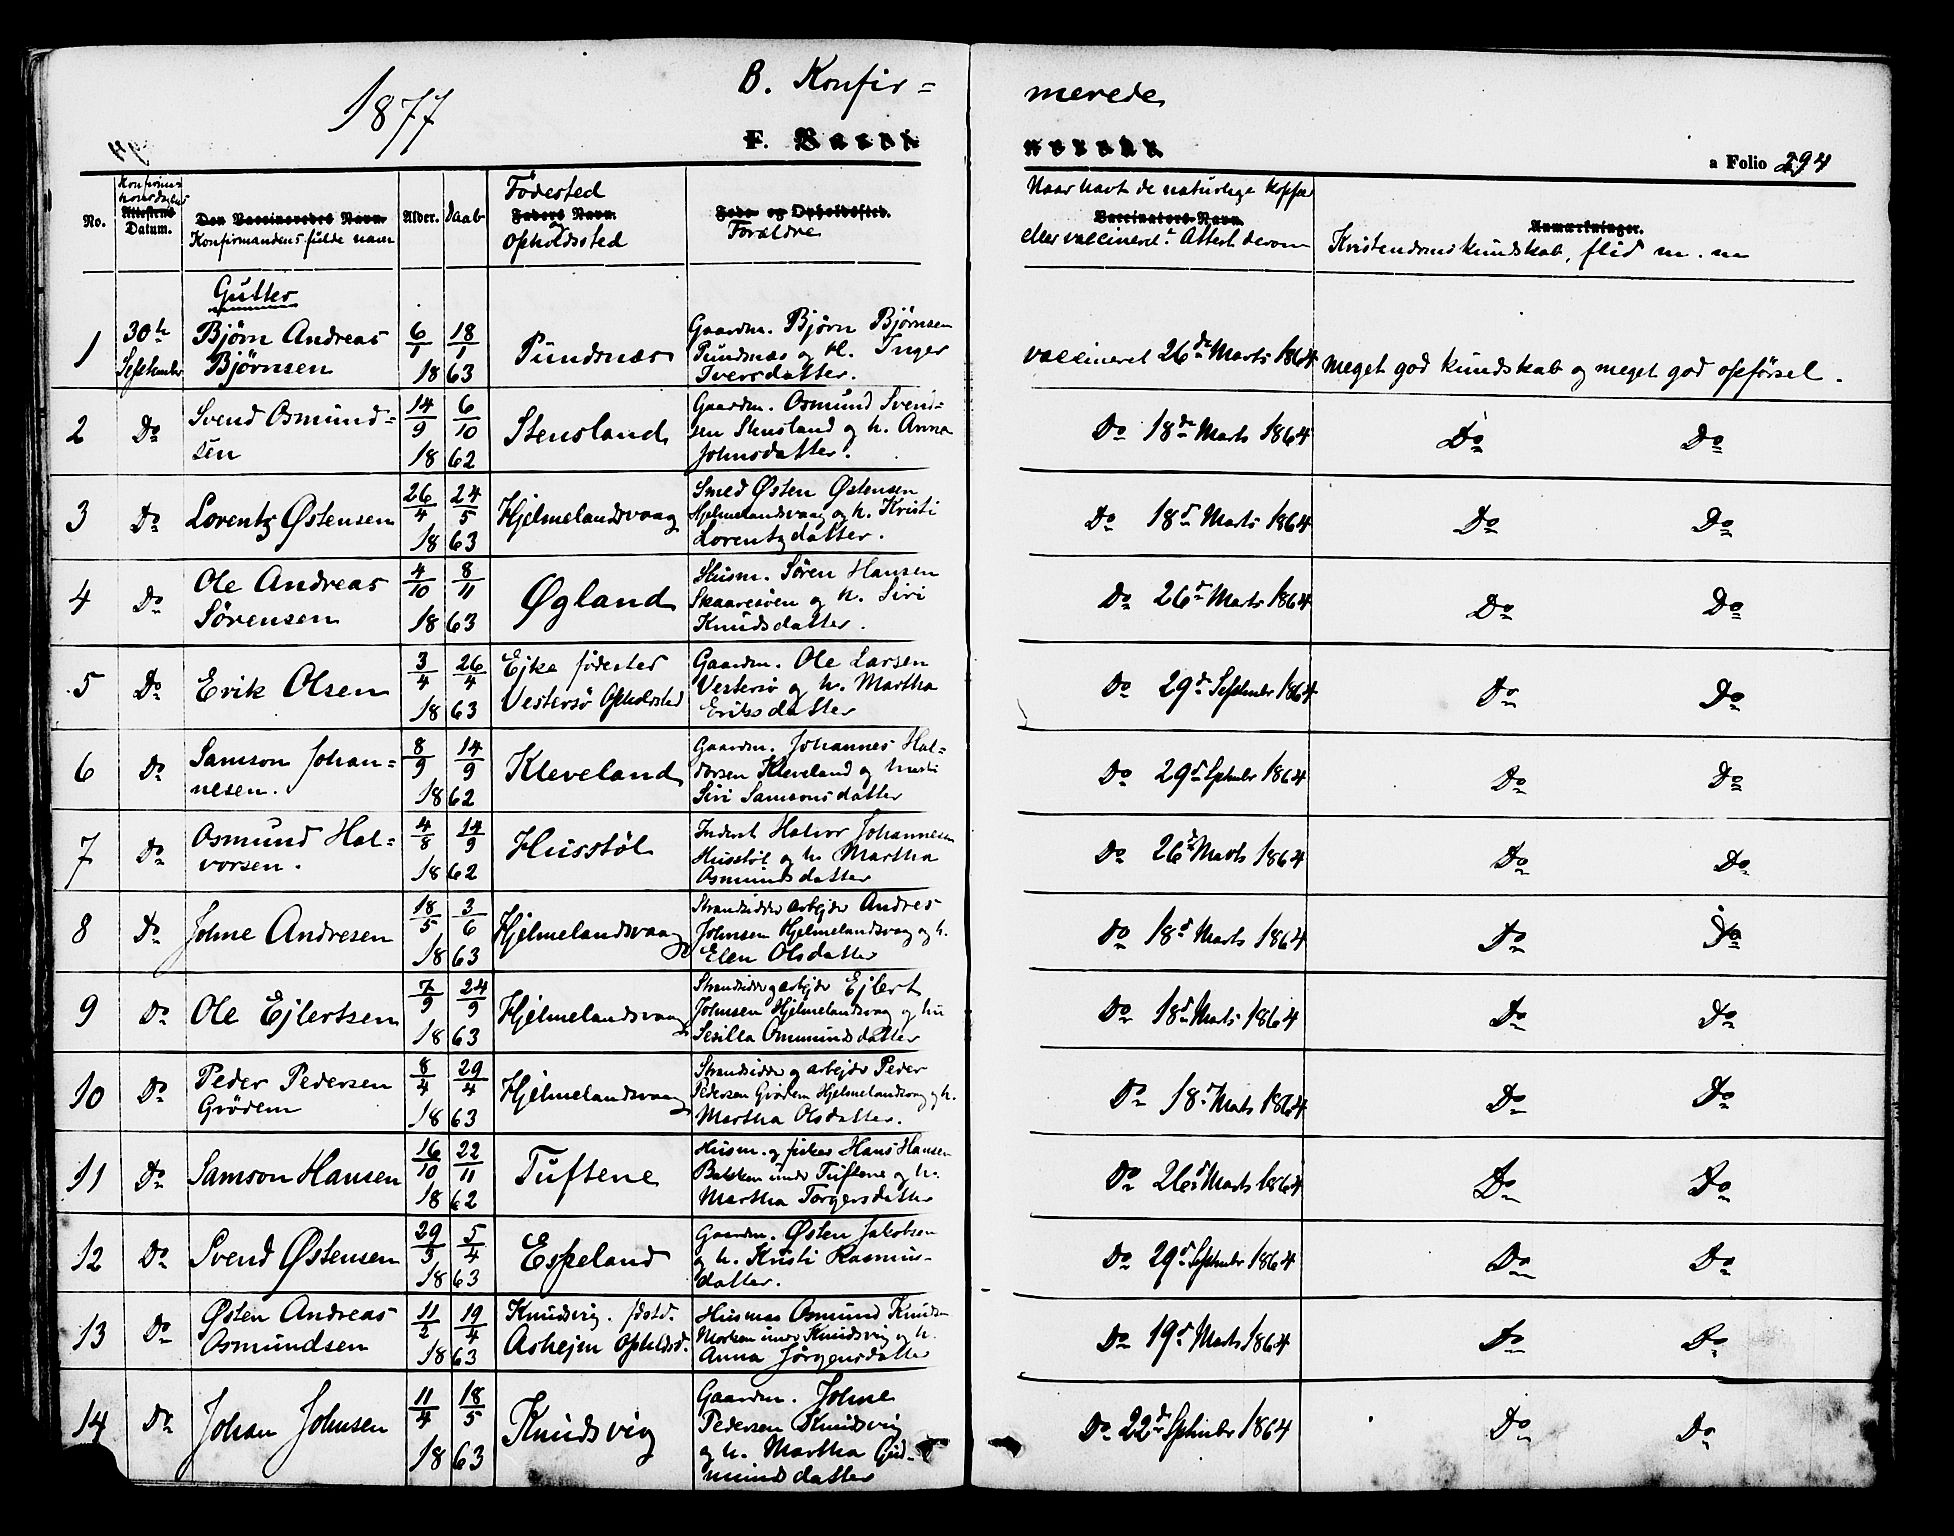 1877
B. Konfir=
merede
F.
a Folio 294
No.
Konfirma-
Datum.
Den Vaccineredes Navn.
Konfirmandens fulde navn
Alder.
Daab
Fødested
Faders Navn.
og
Opholdssted
Føde- og Opholdssted.
Forældre
Naar havt de naturlige kopper
Vaccinators Navn
eller vaccineret. Attest derom
Anmærkninger.
Kristendomskundskab, flid m.m
Gutter
1 30te September Bjørn Andreas Bjørnsen 6/1 18/1 1863 Pundsnæs
Gaardm. Bjørn Bjørnsen
Pundsnæs og H. Inger
Iversdatter.
vaccineret 26de Marts 1864 meget god kundskab og meget god opførsel.
2 Do Svend Osmund=
sen 14/9 6/10 1862 Stensland
Gaardm. Osmund Svend=
sen Stensland og h. Anna
Johnsdatter.
Do 18de Marts 1864 Do Do
3 Do Lorentz Østensen 26/4 24/5 1863 Hjelmelandsvaag
Smed Østen Østensen
Hjelmelandsvaag og h. Kristi
Lorentzdatter.
Do 18d Marts 1864 Do Do
4 Do Ole Andreas
Sørensen 4/10 8/11 1863 Øgland
Husm. Søren Hansen
Skaaresøen og h. Siri
Knudsdatter.
Do 26d Marts 1864 Do Do
5 Do Erik Olsen 3/4 26/4 1863 Ejke fødested
Vestersø Opholdssted
Gaardm. Ole Larsen
Vestersø og h. Martha
Eriksdatter
Do 29d September 1864 Do Do
6 Do Samson Johan=
nesen. 8/9 14/9 1862 Kleveland
Gaardm. Johannes Hal=
dorsen Kleveland og hustru
Siri Samsonsdatter
Do 29d Septmbr 1864 Do Do
7 Do Osmund Hal=
vorsen. 4/8 14/9 1862 Husstøl
Inderst Halvor Johannesen
Husstøl og h. Martha
Osmundsdatter
Do 26d Marts 1864 Do Do
8 Do Johne Andresen 18/5 3/6 1863 Hjelmelandsvaag
Strandsidder arbejder Andres
Johnsen Hjelmelandsvag og h.
Elen Olsdatter
Do 18d Marts 1864 Do Do
9 Do Ole Ejlertsen 7/9 24/9 1863 Hjelmelandsvaag
Strandsidder og arbejder Ejlert
Johnsen Hjelmelandsvag og hu
Sesilla Ommundsdatter
Do 18d Marts 1864 Do Do
10 Do Peder Pedersen
Grødem 8/4 29/4 1863 Hjelmelandsvaag
Strandsidder og arbejder Peder
Pedersen Grødem Hjelmelandsvag og h.
Martha Olsdatter.
Do 18d Marts 1864 Do Do
11 Do Samson Hansen 16/10 22/11 1862 Tuftene
Husm. og fisker Hans Hansen
Bakken under Tuftene og h.
Martha Torgersdatter
Do 26d Marts 1864 Do Do
12 Do Svend Østensen 29/3 5/4 1863 Espeland
Gaardm. Østen Jakobsen
og h. Kristi Rasmus-
datter.
Do 29d September 1864 Do Do
13 Do Østen Andreas
Osmundsen 11/2 19/4 1863 Knudsvig. fdstd.
Ashejm Opholdsd.
Husmas Osmund Knudsen
Morken under Knudsvig og h.
Anna Jørgensdatter
Do 19d Marts 1864 Do Do
14 Do Johan Johnsen 11/4 18/5 1863 Knudsvig
Gaardm. Johne
Pedersen Knudsvig
og h. Martha Gud-
mundsdatter
Do 22d Septmbr 1864 Do Do